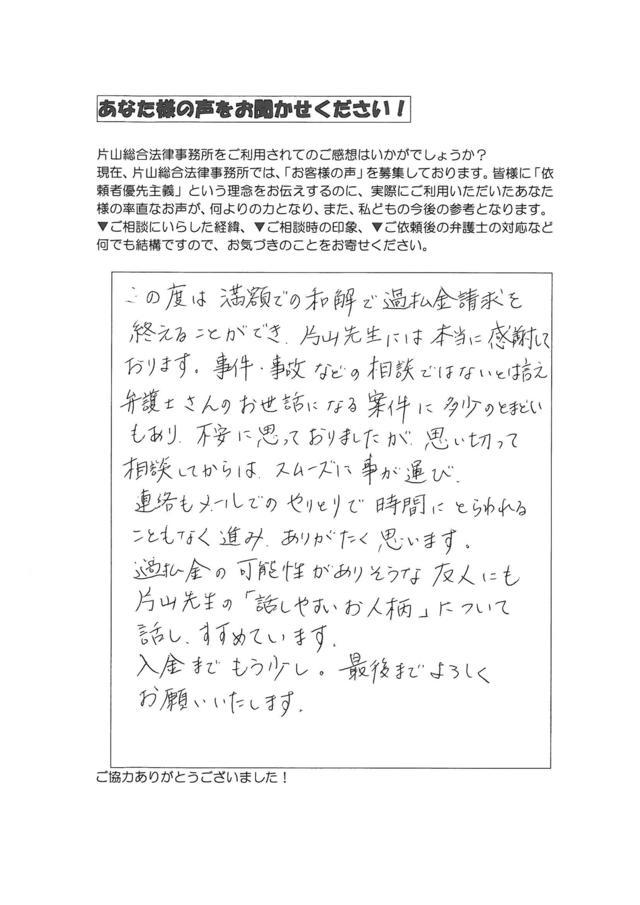 あなた様の声をお聞かせください！
片山総合法律事務所をご利用されてのご感想はいかがでしょうか？
現在、片山総合法律事務所では、「お客様の声」を募集しております。皆様に「依
頼者優先主義」という理念をお伝えするのに、実際にご利用いただいたあなた
様の率直なお声が、何よりの力となり、また、私どもの今後の参考となります。
▼ご相談にいらした経緯、▼ご相談時の印象、▼ご依頼後の弁護士の対応など
何でも結構ですので、お気づきのことをお寄せください。
この度は 満額での和解で過払金請求を
終えることができ、片山先生には本当に感謝して
おります。事件・事故などの相談ではないとは言え
弁護士さんのお世話になる案件に多少のとまどい
もあり、不安に思っておりましたが、思い切って
相談してからは、スムーズに事が運び、
連絡もメールでのやりとりで時間にとらわれる
こともなく進み、ありがたく思います。
過払金の可能性がありそうな友人にも
片山先生の「話しやすいお人柄」について
話し、すすめています。
入金までもう少し。最後までよろしく
お願いいたします。
ご協力ありがとうございました！